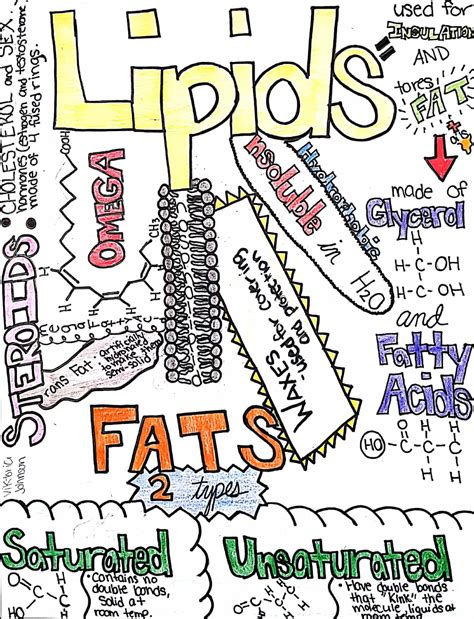 Lipids
used for
INSULATION
AND
stores
FAT
made of
Glycerol
H
H-C-OH
H-C-OH
H
and
Fatty
Acids
HO
O
C-C-C
H
H
STEROIDS
• CHOLESTEROL and SEX
hormones (estrogen and testosterone
made of 4 fused rings.
COOH
OMEGA
CH₃
Hydrophobic
insoluble
in
H₂O
WAXES
-used for covering
and protection
Trans Fat
artificially
semi-solid
Johnson
FATS
2 types
Saturated
• contains no
double bonds,
Solid at
room temp.
O
C-C
HO
H
Unsaturated
• Have double bonds
that "kink" the
molecule, liquids at
room temp
O
C
HO
H